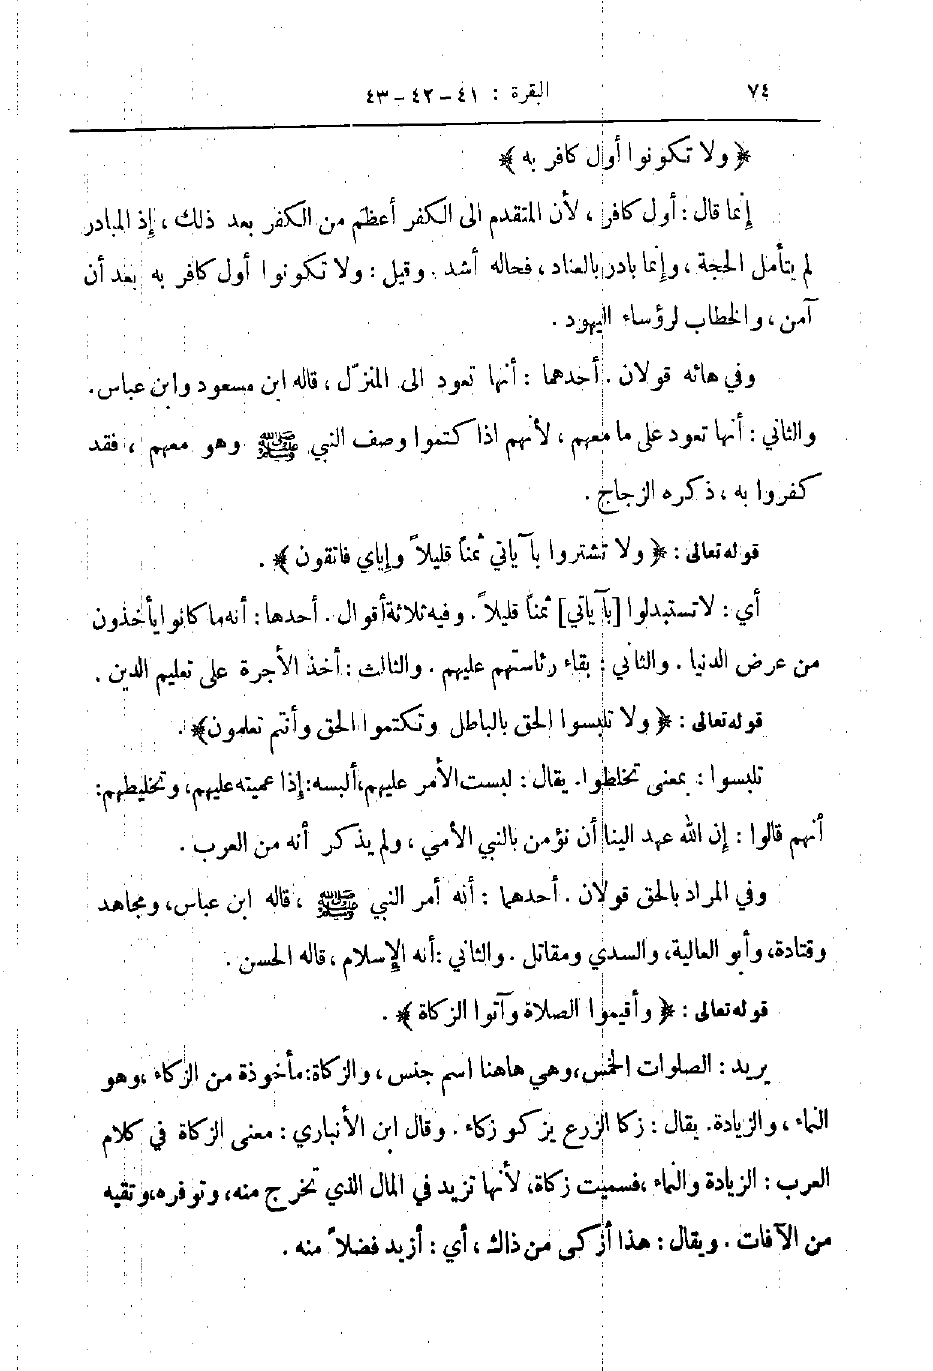 ٧٤ البقرة : ٤١-٤٢-٤٣
﴿ ولا تكونوا أول كافر به ﴾
إنما قال : أول كافر ، لأن المتقدم الى الكفر أعظم من الكفر بعد ذلك ، إذ المبادر
لم يتأمل الحجة ، وإنما بادر بالعناد ، فحاله أشد . وقيل : ولا تكونوا أول كافر به بعد أن
آمن ، والخطاب لرؤساء اليهود .
وفي هائه قولان . أحدهما : أنها تعود الى المنزّل ، قاله ابن مسعود وابن عباس .
والثاني : أنها تعود على ما معهم ، لأنهم اذا كتموا وصف النبي ﷺ وهو معهم ، فقد
كفروا به ، ذكره الزجاج .
قوله تعالى : ﴿ ولا تشتروا بآياتي ثمناً قليلاً وإياي فاتقون ﴾ .
أي : لا تستبدلوا [بآياتي] ثمناً قليلاً . وفيه ثلاثة أقوال . أحدها : أنه ما كانوا يأخذون
من عرض الدنيا . والثاني : بقاء رئاستهم عليهم . والثالث : أخذ الأجرة على تعليم الدين .
قوله تعالى : ﴿ ولا تلبسوا الحق بالباطل وتكتموا الحق وأنتم تعلمون ﴾ .
تلبسوا : بمعنى تخلطوا . يقال : لبست الأمر عليهم، ألبسه : إذا عميته عليهم، وتخليطهم :
أنهم قالوا : إن الله عهد الينا أن نؤمن بالنبي الأمي ، ولم يذكر أنه من العرب .
وفي المراد بالحق قولان . أحدهما : أنه أمر النبي ﷺ ، قاله ابن عباس، ومجاهد
وقتادة، وأبو العالية، والسدي ومقاتل . والثاني : أنه الإسلام ، قاله الحسن .
قوله تعالى : ﴿ وأقيموا الصلاة وآتوا الزكاة ﴾ .
يريد : الصلوات الخمس، وهي هاهنا اسم جنس ، والزكاة : مأخوذة من الزكاء ، وهو
النماء ، والزيادة. يقال : زكا الزرع يزكو زكاء . وقال ابن الأنباري : معنى الزكاة في كلام
العرب : الزيادة والنماء ، فسميت زكاة، لأنها تزيد في المال الذي تخرج منه، وتوفره، وتقيه
من الآفات . ويقال : هذا أزكى من ذاك ، أي : أزيد فضلاً منه .